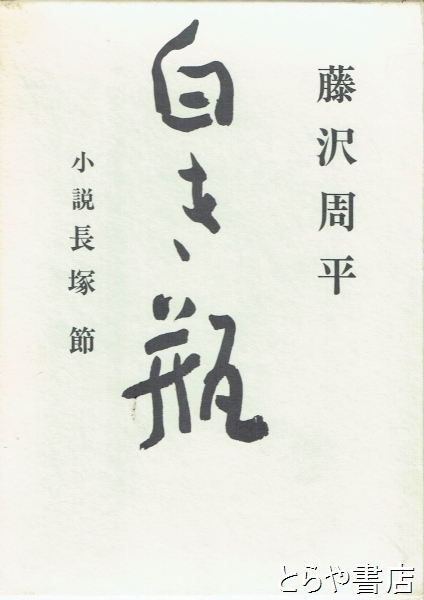 藤沢周平
白き瓶
小説 長塚 節
とらや書店